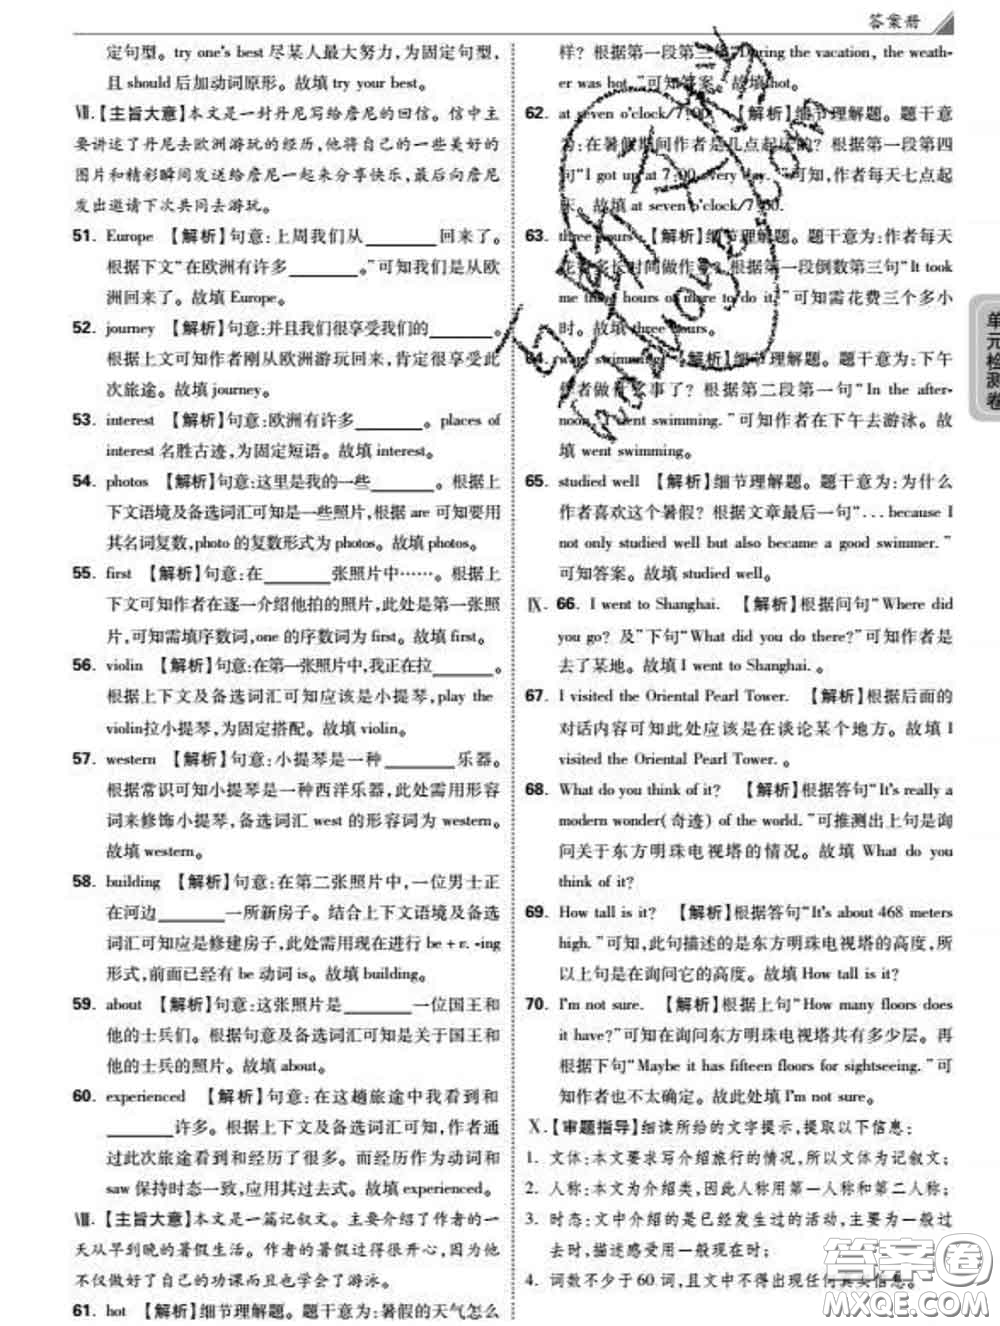 答案册
定句型。try one's best 尽某人最大努力,为固定句型,
且 should 后加动词原形。故填 try your best。
Ⅶ.【主旨大意】本文是一封丹尼写给詹尼的回信。信中主
要讲述了丹尼去欧洲游玩的经历,他将自己的一些美好的
图片和精彩瞬间发送给詹尼一起来分享快乐,最后向詹尼
发出邀请下次共同去游玩。
51. Europe 【解析】句意:上周我们从________回来了。
根据下文“在欧洲有许多________。”可知我们是从欧
洲回来了。故填 Europe。
52. journey 【解析】句意:并且我们很享受我们的________。
根据上文可知作者刚从欧洲游玩回来,肯定很享受此
次旅途。故填 journey。
53. interest 【解析】句意:欧洲有许多________。places of
interest 名胜古迹,为固定短语。故填 interest。
54. photos 【解析】句意:这里是我的一些________。根据上
下文语境及备选词汇可知是一些照片,根据 are 可知要用
其名词复数,photo 的复数形式为 photos。故填 photos。
55. first 【解析】句意:在________张照片中……。根据上
下文可知作者在逐一介绍他拍的照片,此处是第一张照
片,可知需填序数词,one 的序数词为 first。故填 first。
56. violin 【解析】句意:在第一张照片中,我正在拉________。
根据上下文及备选词汇可知应该是小提琴,play the
violin拉小提琴,为固定搭配。故填 violin。
57. western 【解析】句意:小提琴是一种________乐器。
根据常识可知小提琴是一种西洋乐器,此处需用形容
词来修饰小提琴,备选词汇 west 的形容词为 western。
故填 western。
58. building 【解析】句意:在第二张照片中,一位男士正
在河边________一所新房子。结合上下文语境及备选
词汇可知应是修建房子,此处需用现在进行 be + v. -ing
形式,前面已经有 be 动词 is。故填 building。
59. about 【解析】句意:这张照片是________一位国王和
他的士兵们。根据句意及备选词汇可知是关于国王和
他的士兵的照片。故填 about。
60. experienced 【解析】句意:在这趟旅途中我看到和
________许多。根据上下文及备选词汇可知,作者通
过此次旅途看到和经历了很多。而经历作为动词和
saw 保持时态一致,应用其过去式。故填 experienced。
Ⅷ.【主旨大意】本文是一篇记叙文。主要介绍了作者的一
天从早到晚的暑假生活。作者的暑假过得很开心,因为他
不仅学好了自己的功课而且也学会了游泳。
61. hot 【解析】细节理解题。题干意为:暑假的天气怎么
样? 根据第一段第三句“During the vacation, the weath-
er was hot.”可知答案。故填 hot。
62. at seven o'clock/7:00 【解析】细节理解题。题干意
为:在暑假期间作者是几点起床的? 根据第一段第四
句“I got up at 7:00 every day.”可知,作者每天七点起
床。故填 at seven o'clock/7:00.
63. three hours 【解析】细节理解题。题干意为:作者每天
花费多长时间做作业? 根据第一段倒数第三句“It took
me three hours or more to do it.”可知需花费三个多小
时。故填 three hours。
64. went swimming 【解析】细节理解题。题干意为:下午
作者做什么事了? 根据第二段第一句“In the after-
noon, I went swimming.”可知作者在下午去游泳。故
填 went swimming。
65. studied well 【解析】细节理解题。题干意为:为什么
作者喜欢这个暑假? 根据文章最后一句“…because I
not only studied well but also became a good swimmer.”
可知答案。故填 studied well。
Ⅸ. 66. I went to Shanghai. 【解析】根据问句“Where did
you go? 及”下句“What did you do there?”可知作者是
去了某地。故填 I went to Shanghai.。
67. I visited the Oriental Pearl Tower. 【解析】根据后面的
对话内容可知此处应该是在谈论某个地方。故填 I
visited the Oriental Pearl Tower.。
68. What do you think of it? 【解析】根据答句“It's really a
modern wonder(奇迹) of the world.”可推测出上句是询
问关于东方明珠电视塔的情况。故填 What do you
think of it?
69. How tall is it? 【解析】根据答句“It's about 468 meters
high.”可知,此句描述的是东方明珠电视塔的高度,所
以上句是在询问它的高度。故填 How tall is it?
70. I'm not sure. 【解析】根据上句“How many floors does
it have?”可知在询问东方明珠电视塔共有多少层。再
根据下句“Maybe it has fifteen floors for sightseeing.”可
知作者也不太确定。故此处填 I'm not sure。
Ⅹ.【审题指导】细读所给的文字提示,提取以下信息:
1. 文体:本文要求写介绍旅行的情况,所以文体为记叙文;
2. 人称:本文为介绍类,因此人称用第一人称和第二人称;
3. 时态:文中介绍的是已经发生过的活动,主要为一般过
去时,描述感受用一般现在时;
4. 词数不少于 60 词,且文中不得出现任何真实信息。
单元检测卷
答案卷
MXQE.COM